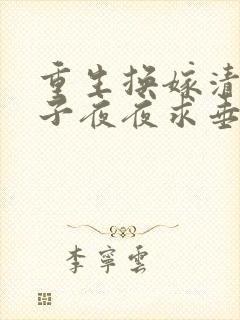 重生换嫁清
子夜夜求垂
李寧雲